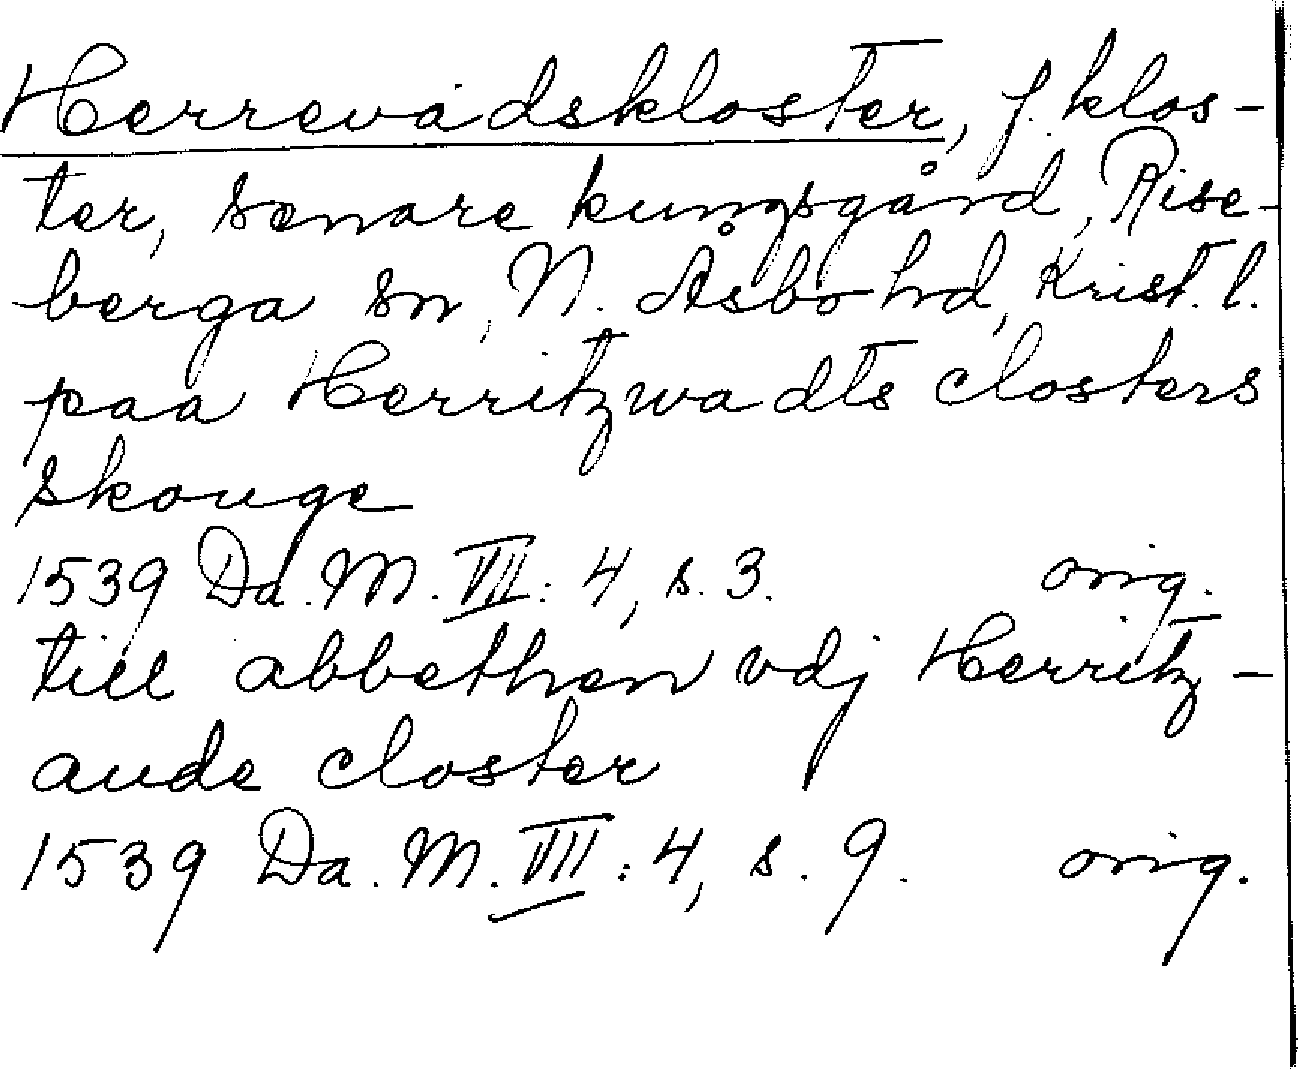 Herrevadskloster, f. klos-
ter, senare kungsgård, Rise-
berga sn, N. Åsbo hd, Krist. l.
paa Herritzwadts closters
skouge
1539 Da. M. VII: 4, s. 3. orig.
till abbethen vdj Herritz-
aude closter
1539 Da. M. VII: 4, s. 9. orig.